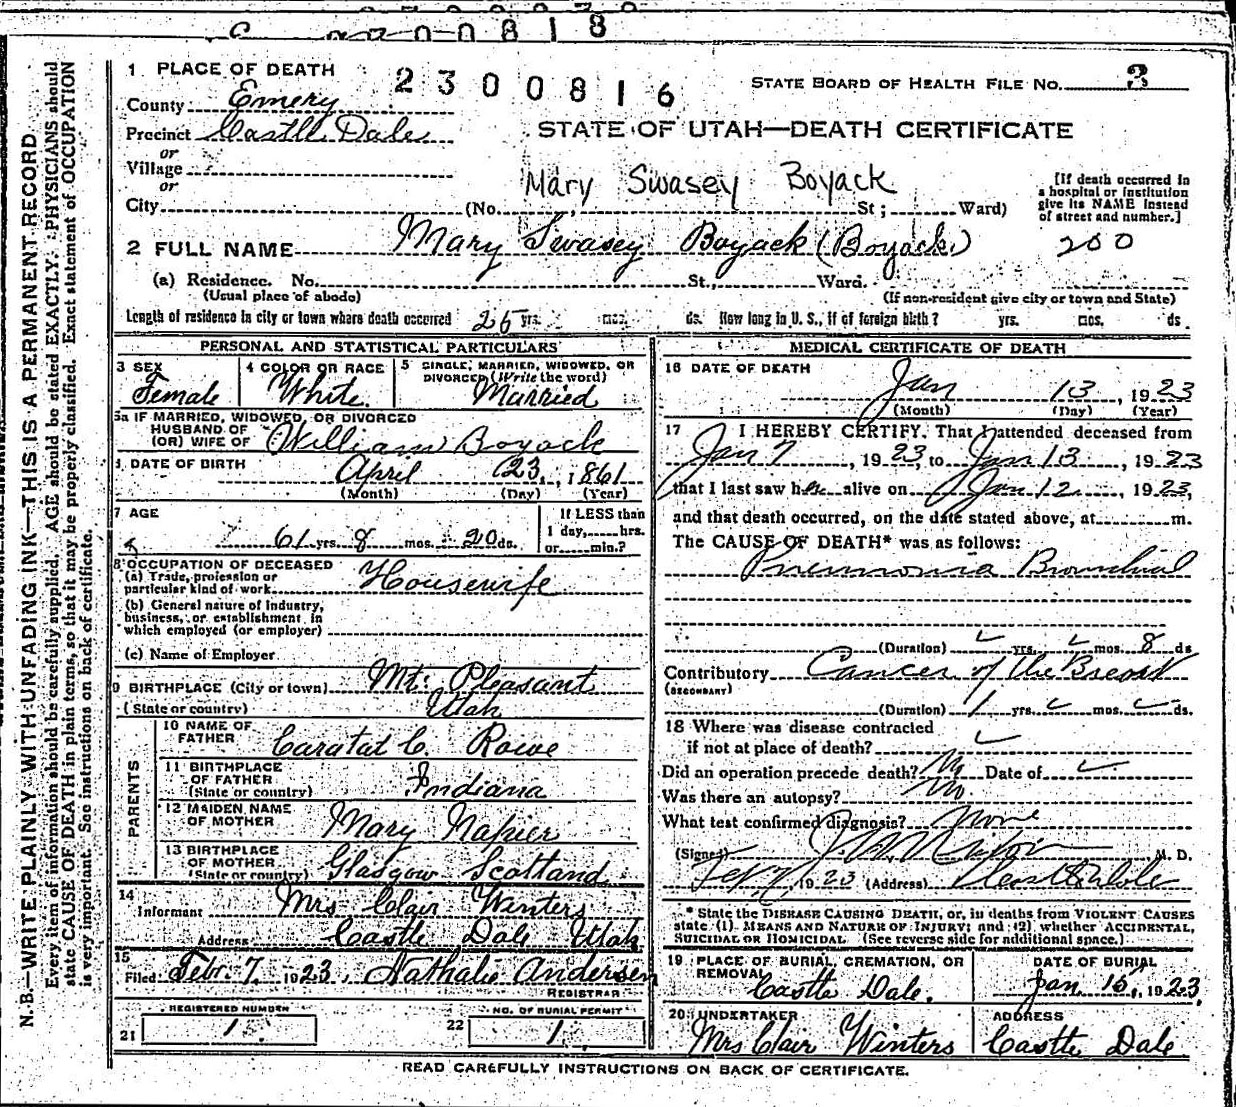 0 0 8 1 8
1 PLACE OF DEATH
2 3 0 0 8 1 6
STATE BOARD OF HEALTH FILE NO. 3
County Emery
Precinct Castle Dale
STATE OF UTAH—DEATH CERTIFICATE
or
Village
or
Mary Swasey Boyack
[If death occurred in
a hospital or institution
give its NAME instead
of street and number.]
City (No. , St; Ward)
2 FULL NAME Mary Swasey Boyack (Boyack)
200
(a) Residence. No. St., Ward.
(Usual place of abode) (If non-resident give city or town and State)
Length of residence in city or town where death occurred 25 yrs. mos. ds. How long in U. S., if of foreign birth? yrs. mos. ds.
PERSONAL AND STATISTICAL PARTICULARS
3 SEX 4 COLOR OR RACE 5 SINGLE, MARRIED, WIDOWED, OR
DIVORCED (Write the word)
Female White Married
5a IF MARRIED, WIDOWED, OR DIVORCED
HUSBAND OF
(OR) WIFE OF William Boyack
DATE OF BIRTH April 23, 1861
(Month) (Day) (Year)
7 AGE If LESS than
1 day, hrs.
61 yrs 8 mos. 20 ds. or min.?
8 OCCUPATION OF DECEASED
(a) Trade, profession or
particular kind of work Housewife
(b) General nature of Industry,
business, or establishment in
which employed (or employer)
(c) Name of Employer
9 BIRTHPLACE (City or town) Mt. Pleasant
(State or country) Utah
PARENTS
10 NAME OF
FATHER Caratat C. Rowe
11 BIRTHPLACE
OF FATHER
(State or country) Indiana
12 MAIDEN NAME
OF MOTHER Mary Napier
13 BIRTHPLACE
OF MOTHER
(State or country) Glasgow Scotland
14
Informant Mrs Clair Winters
Address Castle Dale Utah
15
Filed Febr. 7, 1923, Nathalie Andersen
REGISTRAR
REGISTERED NUMBER NO. OF BURIAL PERMIT
21 1. 22 1.
MEDICAL CERTIFICATE OF DEATH
16 DATE OF DEATH
Jan 13, 1923
(Month) (Day) (Year)
17 I HEREBY CERTIFY, That I attended deceased from
Jan 7, 1923, to Jan 13, 1923
that I last saw her alive on Jan 12, 1923,
and that death occurred, on the date stated above, at m.
The CAUSE OF DEATH* was as follows:
Pneumonia Bronchial
(Duration) yrs. mos. 8 ds
Contributory Cancer of the Breast
(SECONDARY)
(Duration) 1 yrs. mos. ds.
18 Where was disease contracted
if not at place of death?
Did an operation precede death? No Date of
Was there an autopsy? No.
What test confirmed diagnosis? None
(Signed) M. D.
1923 (Address) Castle Dale
* State the DISEASE CAUSING DEATH, or, in deaths from VIOLENT CAUSES
state (1) MEANS AND NATURE OF INJURY; and (2) whether ACCIDENTAL,
SUICIDAL OR HOMICIDAL (See reverse side for additional space.)
19 PLACE OF BURIAL, CREMATION, OR DATE OF BURIAL
REMOVAL
Castle Dale. Jan 15, 1923
20 UNDERTAKER ADDRESS
Mrs Clair Winters Castle Dale
READ CAREFULLY INSTRUCTIONS ON BACK OF CERTIFICATE.
N. B.—WRITE PLAINLY WITH UNFADING INK—THIS IS A PERMANENT RECORD
Every item of information should be carefully supplied. AGE should be stated EXACTLY. PHYSICIANS should
state CAUSE OF DEATH in plain terms, so that it may be properly classified. Exact statement of OCCUPATION
is very important. See instructions on back of certificate.